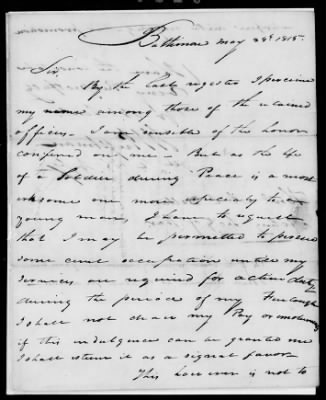 Baltimore May 28th 1815.
Sir,
By the last register I perceive
my name among those of the retained
officers. I am sensible of the honor
conferred on me - But as the life
of a Soldier during Peace is a most
irksome one more especially to a
young man, I have to request
that I may be permitted to pursue
some civil occupation until my
services are required for active duty
during the period of my Furlough
I shall not draw my Pay or emoluments
if this indulgence can be granted me
I shall esteem it as a signal favor
This however is not to